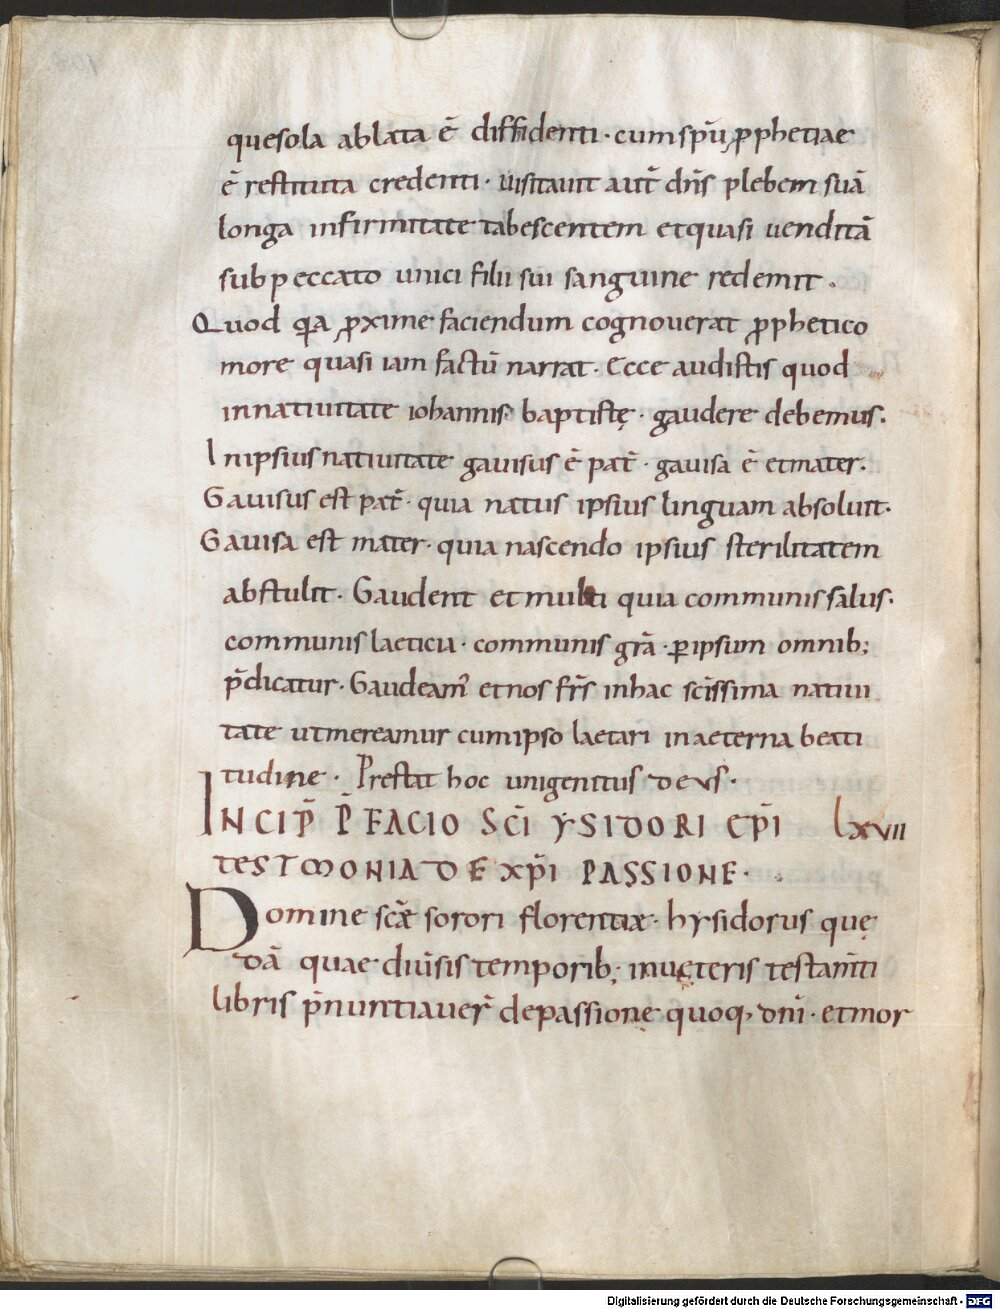 quesola ablata ē diffidenti · cumspū ꝓphetiae
ē restituta credenti · uisitauit aut̄ dn̄s plebem suā
longa infirmitate tabescentem etquasi uenditā
subpeccato unici filii sui sanguine redemit ·
Quod qa ꝓxime faciendum cognouerat ꝓphetico
more quasi iam factū narrat · Ecce audistis quod
innatiuitate iohannis baptistę · gaudere debemus ·
Inipsius natiuitate gauisus ē pat̄ · gauisa ē etmater ·
Gauisus est pat̄ · quia natus ipsius linguam absoluit ·
Gauisa est mater · quia nascendo ipsius sterilitatem
abstulit · Gaudent et multi quia communis salus ·
communis laeticia · communis grā · ꝑipsum omnib;
p̄dicatur · Gaudeam' etnos frs̄ inhac scīssima natiui
tate utmereamur cumipso laetari inaeterna beati
tudine · Prestat hoc unigenitus deus ·
INCIP̄ P̄FACIO SC̄I YSIDORI EP̄I lxvii
TESTMONIA DE XP̄I PASSIONE ·
Domine scāe sorori florentiae · hysidorus quę
dā quae diuīsis temporib; inuęteris testam̄ti
libris p̄nuntiauer̄ depassione quoq, dnī · etmor
Digitalisierung gefördert durch die Deutsche Forschungsgemeinschaft - DFG